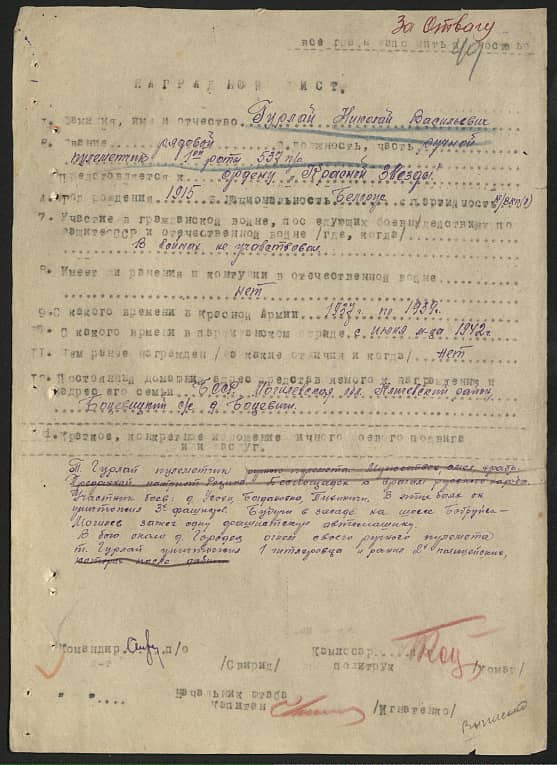 За Отвагу
49
НАГРАДНОЙ ЛИСТ.
1. Фамилия, имя и отчество Гурлай Николай Васильевич
2. Звание рядовой 3. Должность, часть ручной
пулеметчик 1ой роты 537 п/о
Представляется к ордену "Красной Звезды"
Год рождения 1915 Национальность Белорус с.Партийность
7. Участие в гражданской войне, последующих боевых действиях по
защите СССР и отечественной войне /где, когда/
В войнах не участвовал
8. Имеет ли ранения и контузии в отечественной войне
нет
9. С какого времени в Красной Армии 1937г по 1939г.
10. С какого времени в партизанском отряде с июня м-ца 1942г
11. Чем ранее награжден /за какие отличия и когда/ нет
12. Постоянный домашний адрес представляемого к награждению и
адрес его семьи БССР, Могилевская обл. район
Боцевичский с/с д. Боцевичи.
Краткое, конкретное изложение личного боевого подвига
или заслуг.
Т. Гурлай пулеметчик ручного пулемета.
Преданный патриот Родины. Беспощаден к врагам русского народа.
Участник боев: д. В этих боях он
уничтожил 3х фашистов. Будучи в засаде на шоссе Бобруйск-
Могилев зажег одну фашистскую автомашину.
В бою около д. Городец огнем своего ручного пулемета
т. Гурлай уничтожил 1 гитлеровца и ранил 2х полицейских,
Командир п/о Комиссар п/о
/Свирид/ политрук /Комар/
Начальник штаба
капитан /Игнатенко/
Выписано